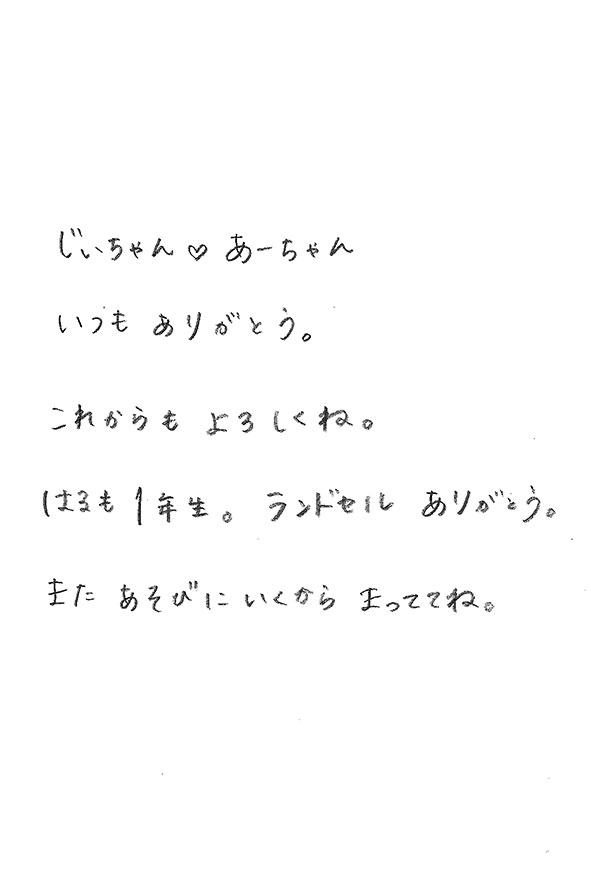 じぃちゃん♡あーちゃん
いつも ありがとう。
これからも よろしくね。
はるも 1年生。 ランドセル ありがとう。
また あそびに いくから まっててね。